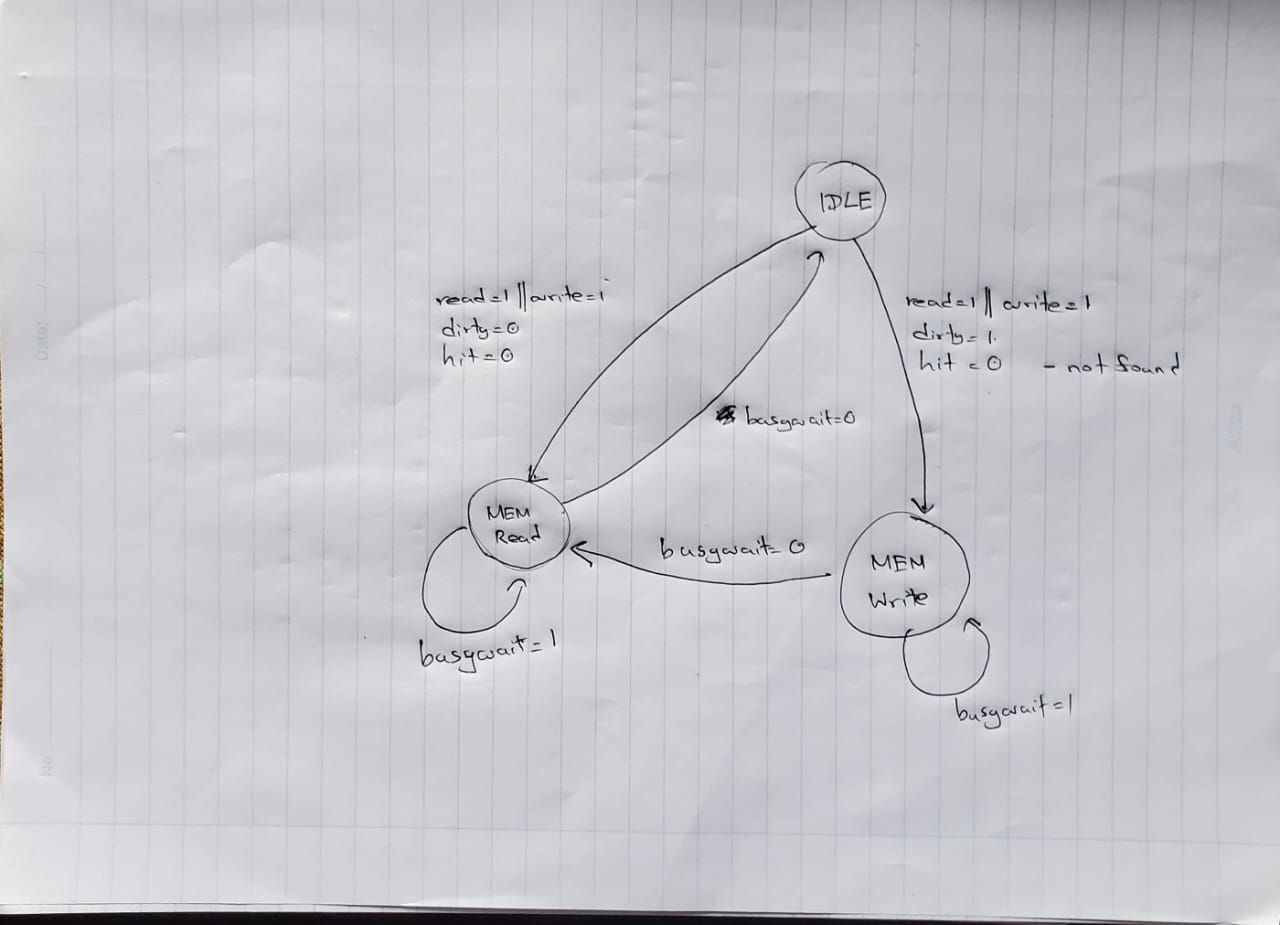 IDLE
read=1 || write=1
dirty=0
hit=0
read=1 || write=1
dirty=1.
hit=0 - not found
busywait=0
MEM
Read
busywait=0
MEM
Write
busywait=1
busywait=1
Date:
No